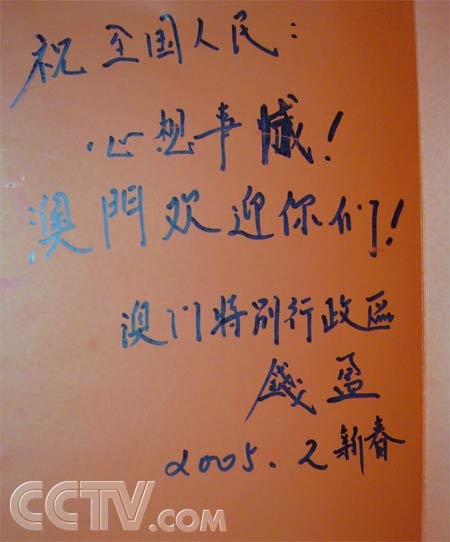 祝全国人民：
心想事成！
澳門欢迎你们！
澳门特别行政區
錢盈
2005.2新春
CCTV.com